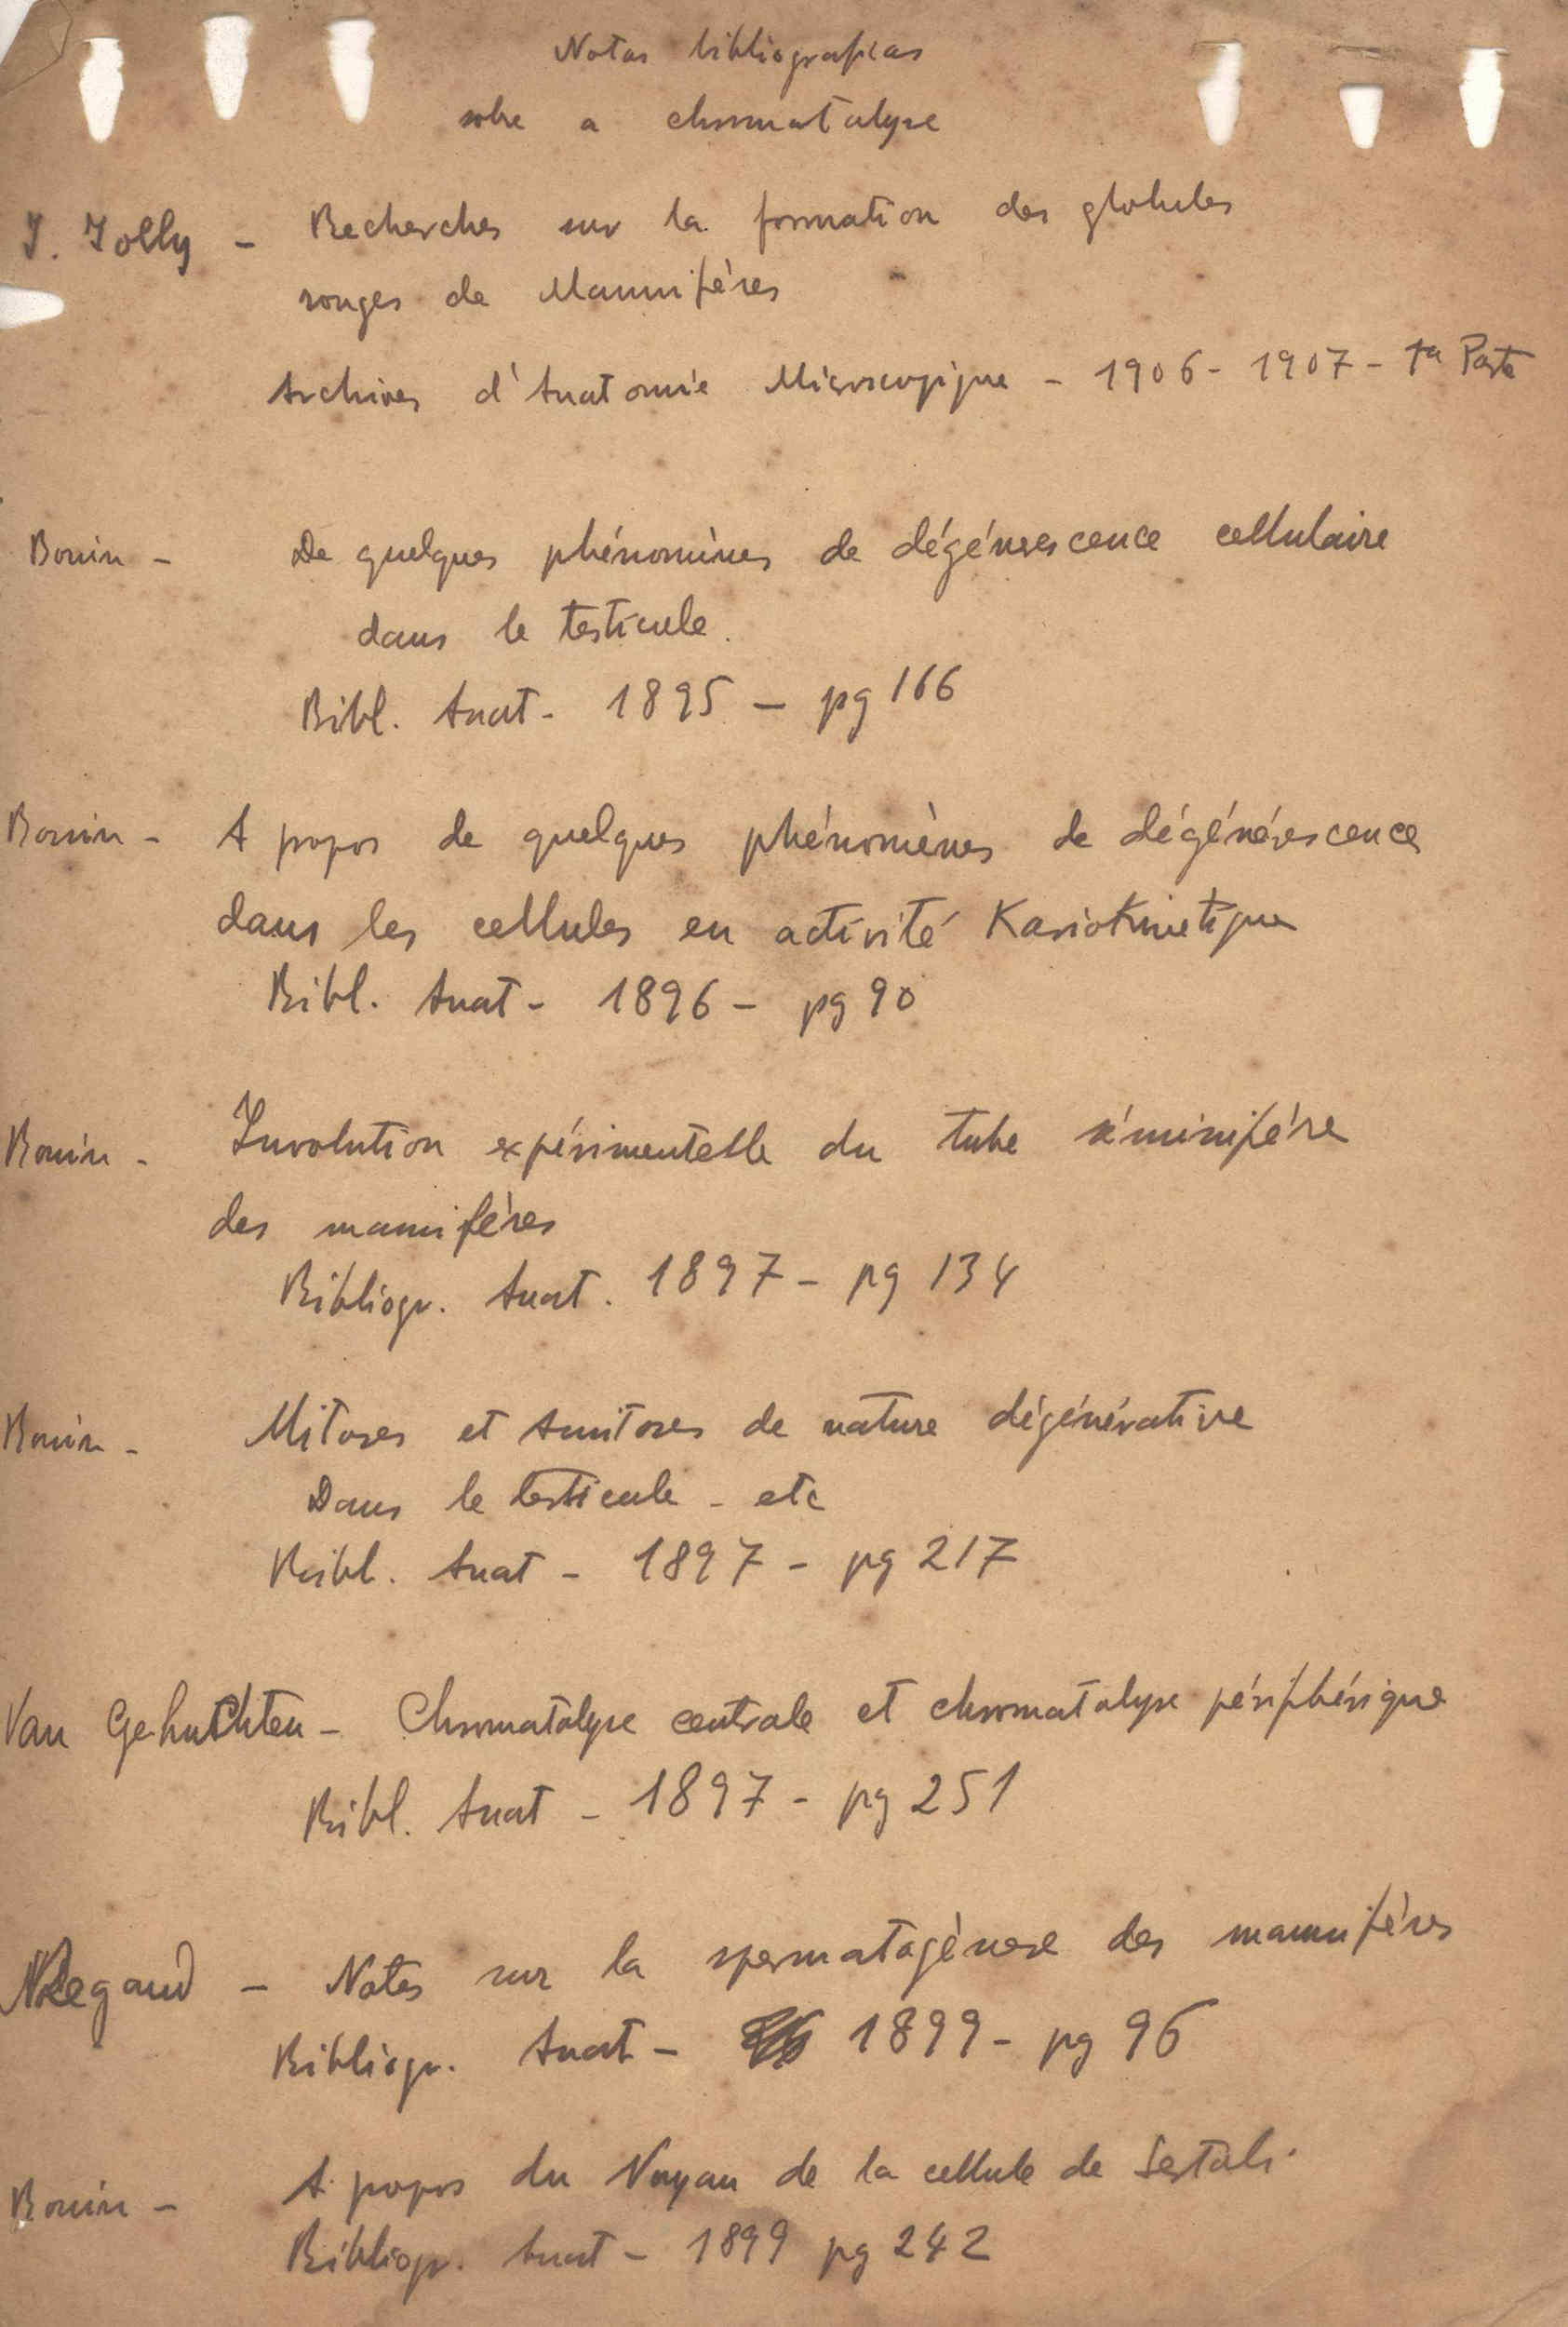 Notas bibliograficas
sobre a chromatolyse
J. Jolly - Recherches sur la formation des globules
rouges de Mammifères
Archives d'Anatomie Microscopique - 1906 - 1907 - 1a Parte
Bouin - De quelques phénomènes de dégénerescence cellulaire
dans le testicule.
Bibl. Anat - 1895 - pg 166
Bouin - A propos de quelques phénomènes de dégénérescence
dans les cellules en activité Kariokinetique
Bibl. Anat - 1896 - pg 90
Bouin - Involution expérimentelle du tube séminifére
des mamifères
Bibliogr. Anat. 1897 - pg 134
Bouin - Mitoses et Amitoses de nature dégénérative
Dans le testicule - etc
Bibl. Anat - 1897 - pg 217
Van Gehuchten - Chromatolyse centrale et chromatolyse périphérique
Bibl. Anat - 1897 - pg 251
Regaud - Notes sur la spermatogènese des mammifères
Bibliogr. Anat - 1899 - pg 96
Bouin - A propos du Noyau de la cellule de Sertoli.
Bibliogr. Anat - 1899 pg 242